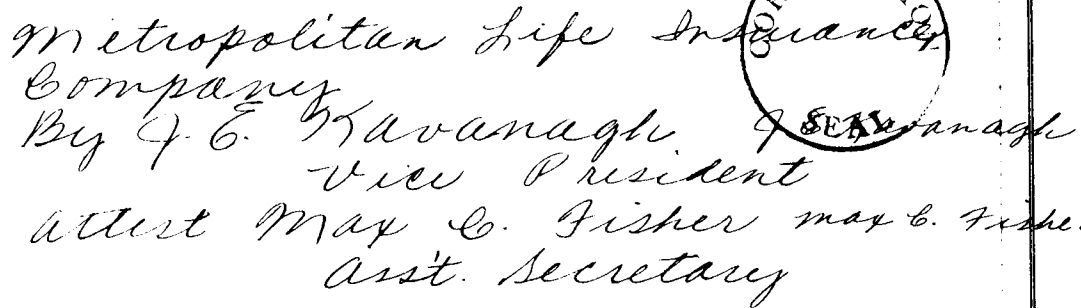 Metropolitan Life Insurance
Company
By J. E. Kavanagh J. E. Kavanagh
Vice President
Attest Max C. Fisher Max C. Fishe
Ass't. Secretary
SEAL